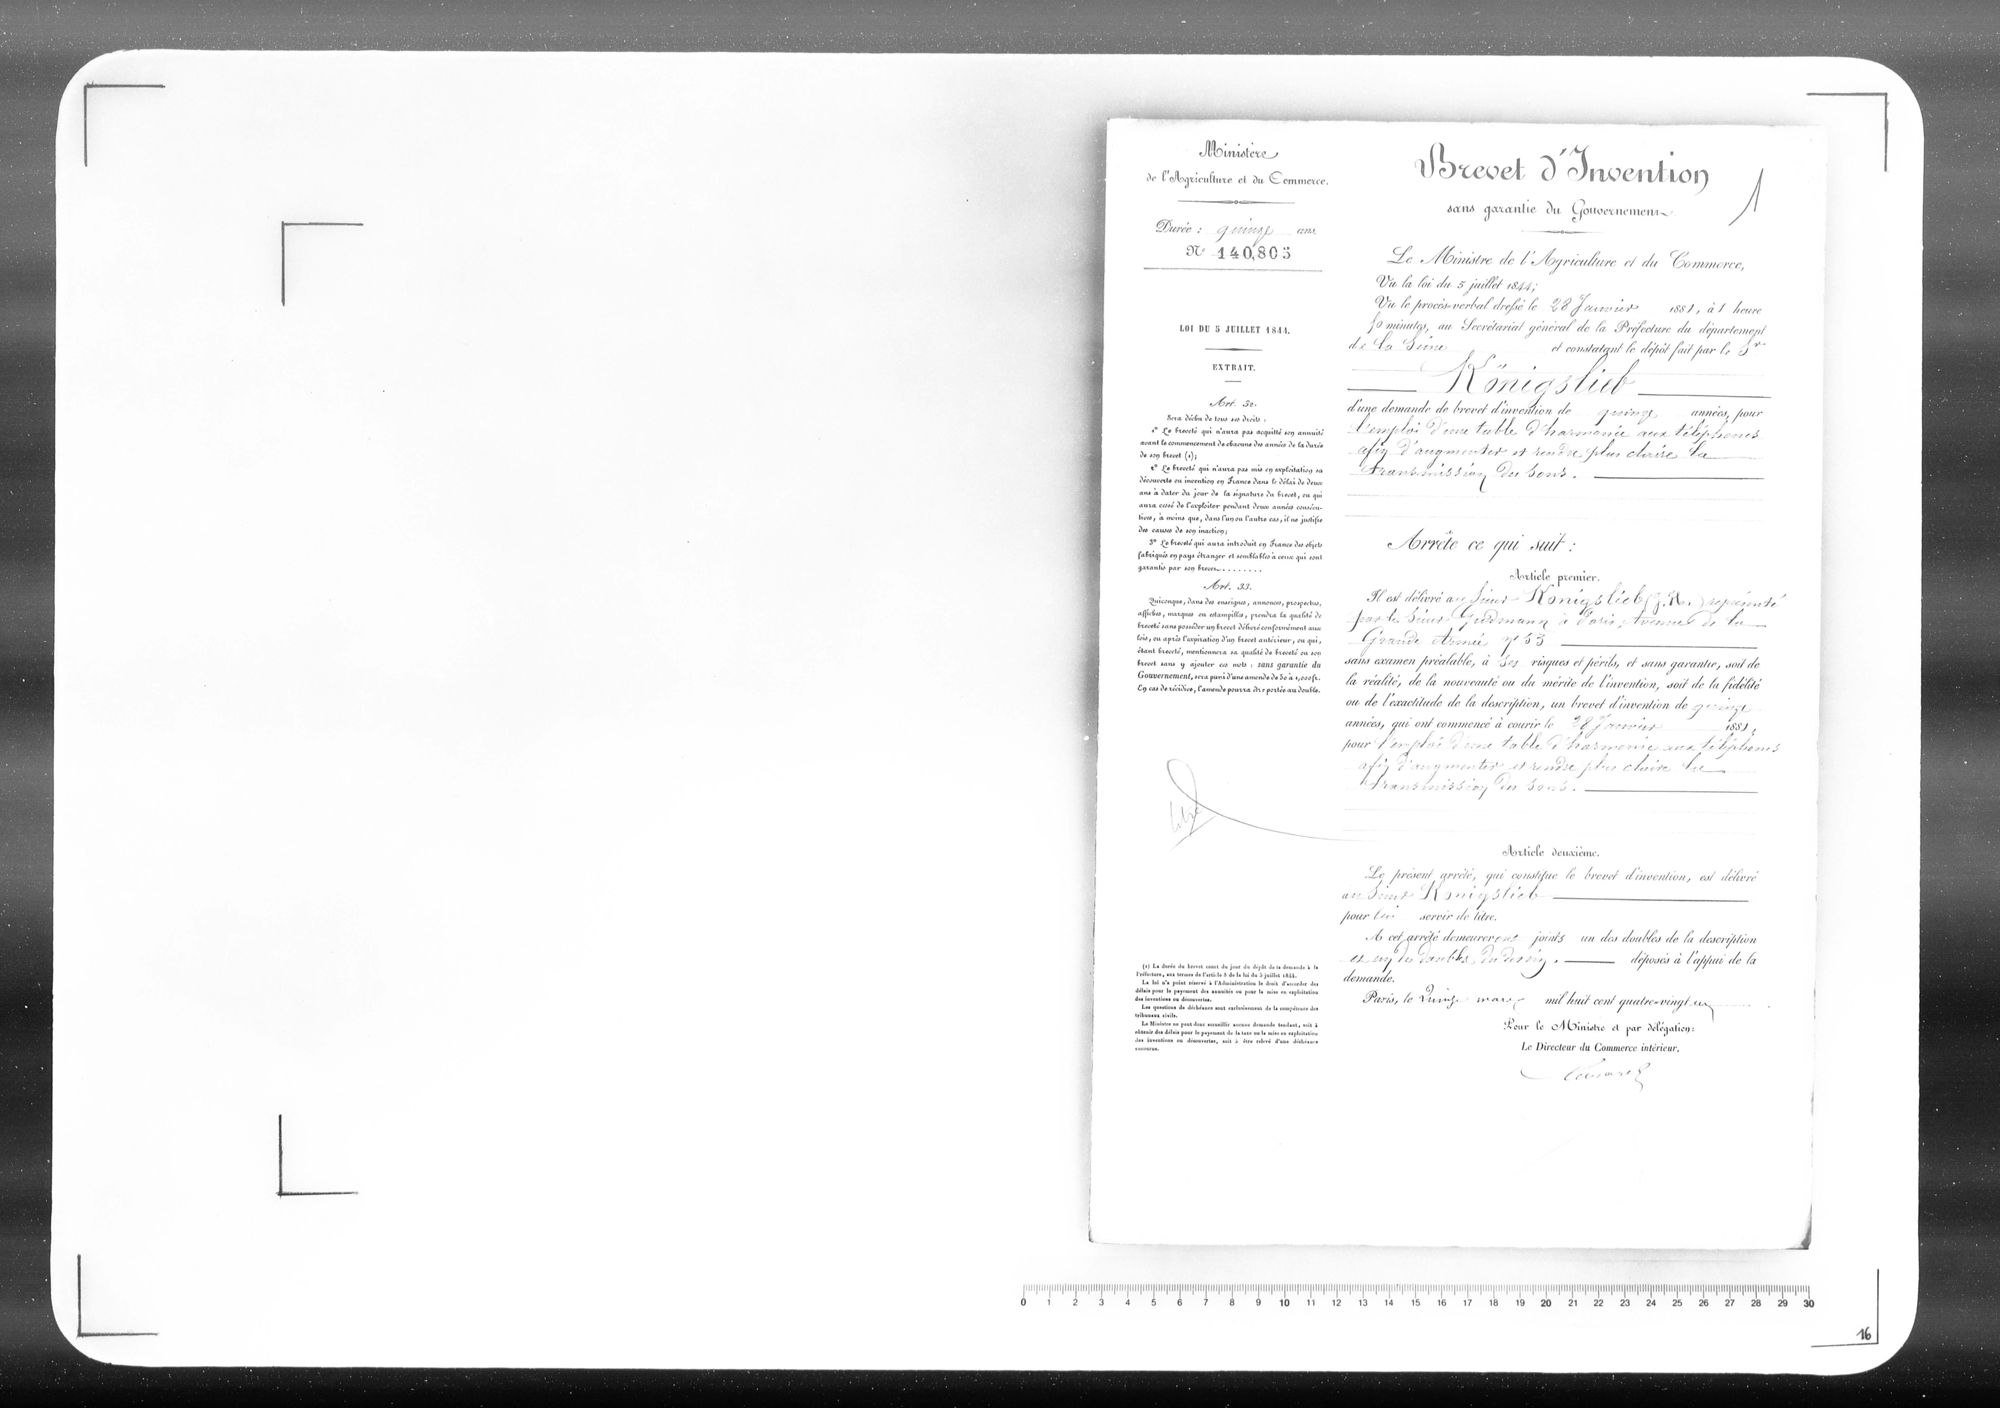 Ministère
de l'Agriculture et du Commerce.
Durée : quinze ans
N° 140,805
LOI DU 5 JUILLET 1844.
EXTRAIT.
Art. 32.
Sera déchu de tous ses droits :
1° Le breveté qui n'aura pas acquitté son annuité
avant le commencement de chacune des années de la durée
de son brevet (1);
2° Le breveté qui n'aura pas mis en exploitation sa
découverte ou invention en France dans le délai de deux
ans à dater du jour de la signature du brevet, ou qui
aura cessé de l'exploiter pendant deux années consécu-
tives, à moins que, dans l'un ou l'autre cas, il ne justifie
des causes de son inaction;
3° Le breveté qui aura introduit en France des objets
fabriqués en pays étranger et semblables à ceux qui sont
garantis par son brevet........
Art. 33.
Quiconque, dans des enseignes, annonces, prospectus,
affiches, marques ou estampilles, prendra la qualité de
breveté sans posséder un brevet délivré conformément aux
lois, ou après l'expiration d'un brevet antérieur, ou qui,
étant breveté, mentionnera sa qualité de breveté ou son
brevet sans y ajouter ces mots : sans garantie du
Gouvernement, sera puni d'une amende de 50 à 1,000 fr.
En cas de récidive, l'amende pourra être portée au double.
(1) La durée du brevet court du jour du dépôt de la demande à la
Préfecture, aux termes de l'article 8 de la loi du 5 juillet 1844.
La loi n'a point réservé à l'Administration le droit d'accorder des
délais pour le payement des annuités ou pour la mise en exploitation
des inventions ou découvertes.
Les questions de déchéance sont exclusivement de la compétence des
tribunaux civils.
Le Ministre ne peut donc accueillir aucune demande tendant, soit à
obtenir des délais pour le payement de la taxe ou la mise en exploitation
des inventions ou découvertes, soit à être relevé d'une déchéance
encourue.
Brevet d'Invention
sans garantie du Gouvernement.
1
Le Ministre de l'Agriculture et du Commerce,
Vu la loi du 5 juillet 1844;
Vu le procès-verbal dressé le 28 Janvier 1881, à 1 heure
minutes, au Secrétariat général de la Préfecture du département
de la Seine et constatant le dépôt fait par le Sr
Königslieb
d'une demande de brevet d'invention de quinze années, pour
l'emploi d'une table d'harmonie aux téléphones
afin d'augmenter et rendre plus claire la
transmission des sons.
Arrête ce qui suit :
Article premier.
Il est délivré au Sieur Königslieb (J. H.) représenté
par le Sieur Gudmann à Paris, Avenue de la
Grande Armée n° 53
sans examen préalable, à ses risques et périls, et sans garantie, soit de
la réalité, de la nouveauté ou du mérite de l'invention, soit de la fidélité
ou de l'exactitude de la description, un brevet d'invention de quinze
années, qui ont commencé à courir le 28 Janvier 1881,
pour l'emploi d'une table d'harmonie aux téléphones
afin d'augmenter et rendre plus claire la
transmission des sons.
Article deuxième.
Le présent arrêté, qui constitue le brevet d'invention, est délivré
au Sieur Königslieb
pour lui servir de titre.
A cet arrêté demeureront joints un des doubles de la description
et un des doubles du dessin. déposés à l'appui de la
demande.
Paris, le Quinze mars mil huit cent quatre-vingt-un
Pour le Ministre et par délégation:
Le Directeur du Commerce intérieur,
0 1 2 3 4 5 6 7 8 9 10 11 12 13 14 15 16 17 18 19 20 21 22 23 24 25 26 27 28 29 30
16